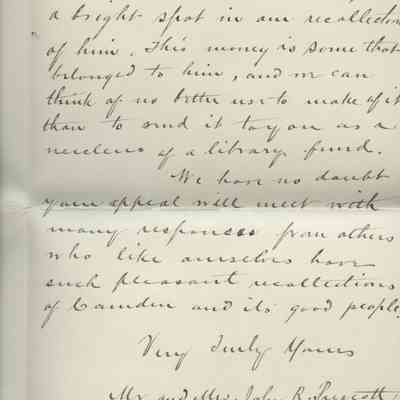 a bright spot in our recollection
of him. This money is some that
belonged to him, and we can
think of no better use to make of it
than to send it to you as a
neucleus of a library fund.
We have no doubt
your appeal will meet with
many responses from others
who like ourselves have
such pleasant recollections
of Camden and its good people.
Very Truly Yours
Mr and Mrs John R. Prescott